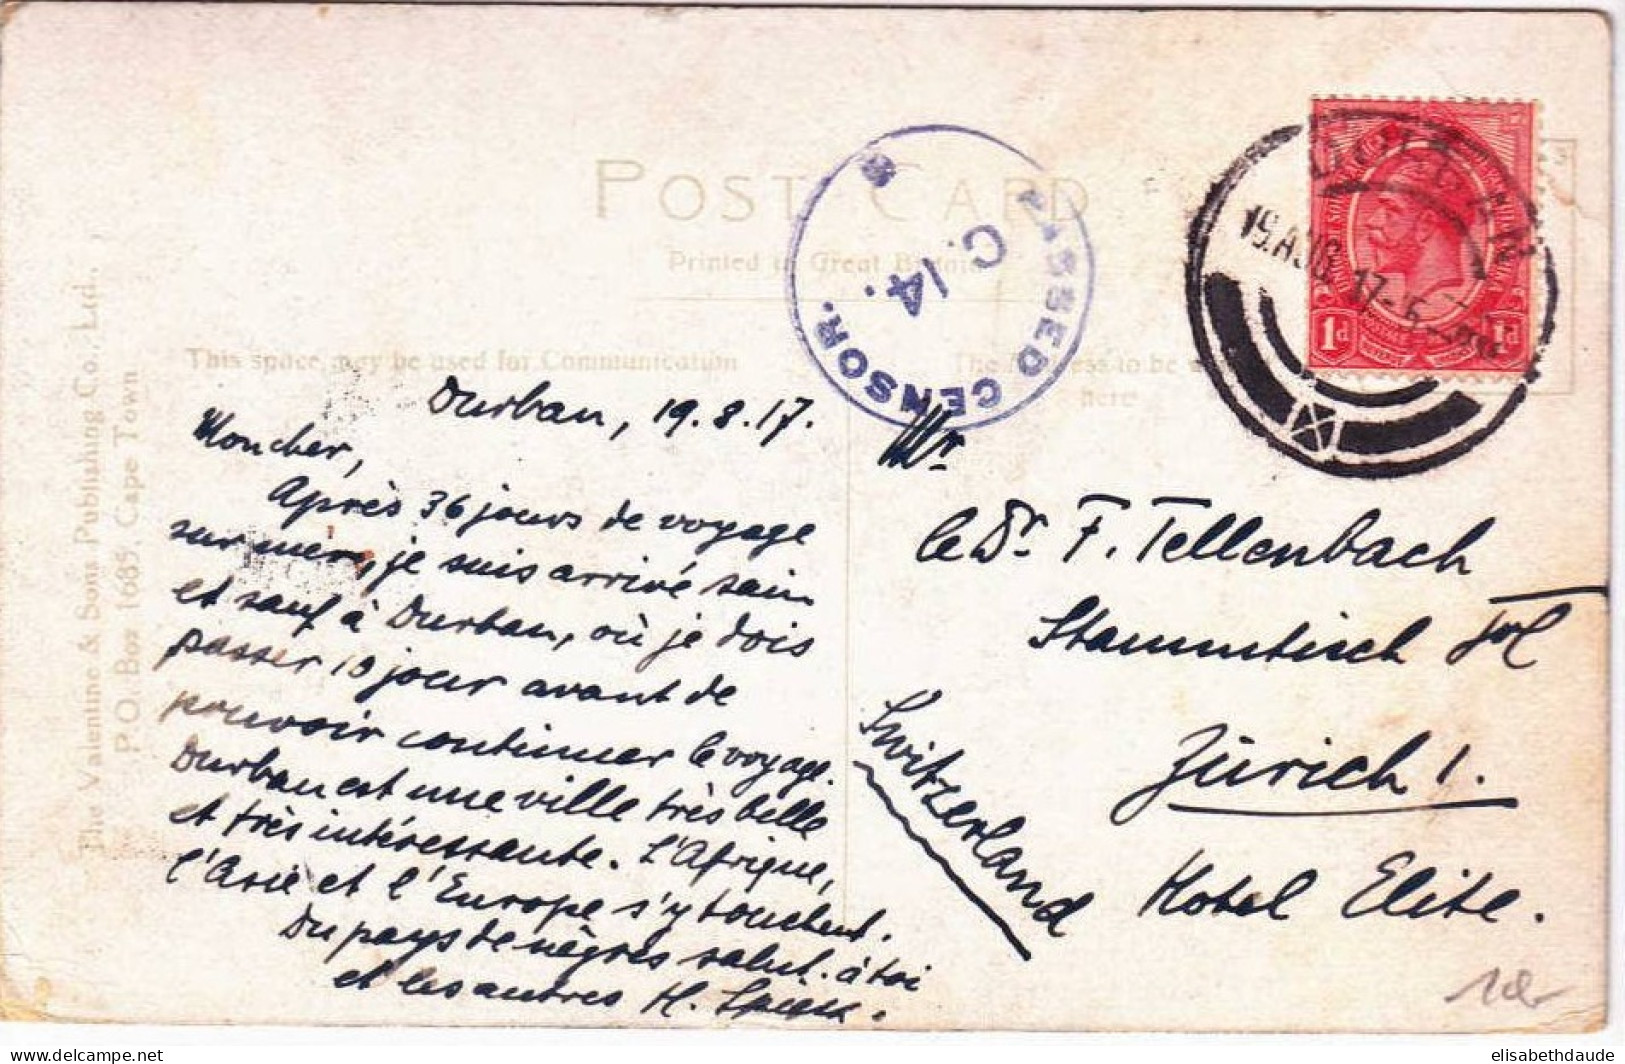 POST CARD
Printed in Great Britain
This space may be used for Communication
The Address to be
here
The Valentine & Sons Publishing Co., Ltd.,
P.O. Box 1685, Cape Town
PASSED CENSOR.
C. 14.
DURBAN
19.AUG 17-5-
1d 1d
Durban, 19.8.17.
Moncher,
Après 36 jours de voyage
sur mer, je suis arrivé sain
et sauf à Durban, où je dois
passer 10 jour avant de
pouvoir continuer le voyage.
Durban est une ville très belle
et très intéressante. L'Afrique,
l'Asie et l'Europe s'y touchent.
Du pays de nègres salut à toi
et les autres H.
Mr
le Dr. F. Tellenbach
Stammtisch
Zürich 1.
Hotel Elite.
Switzerland
elisabethdaude